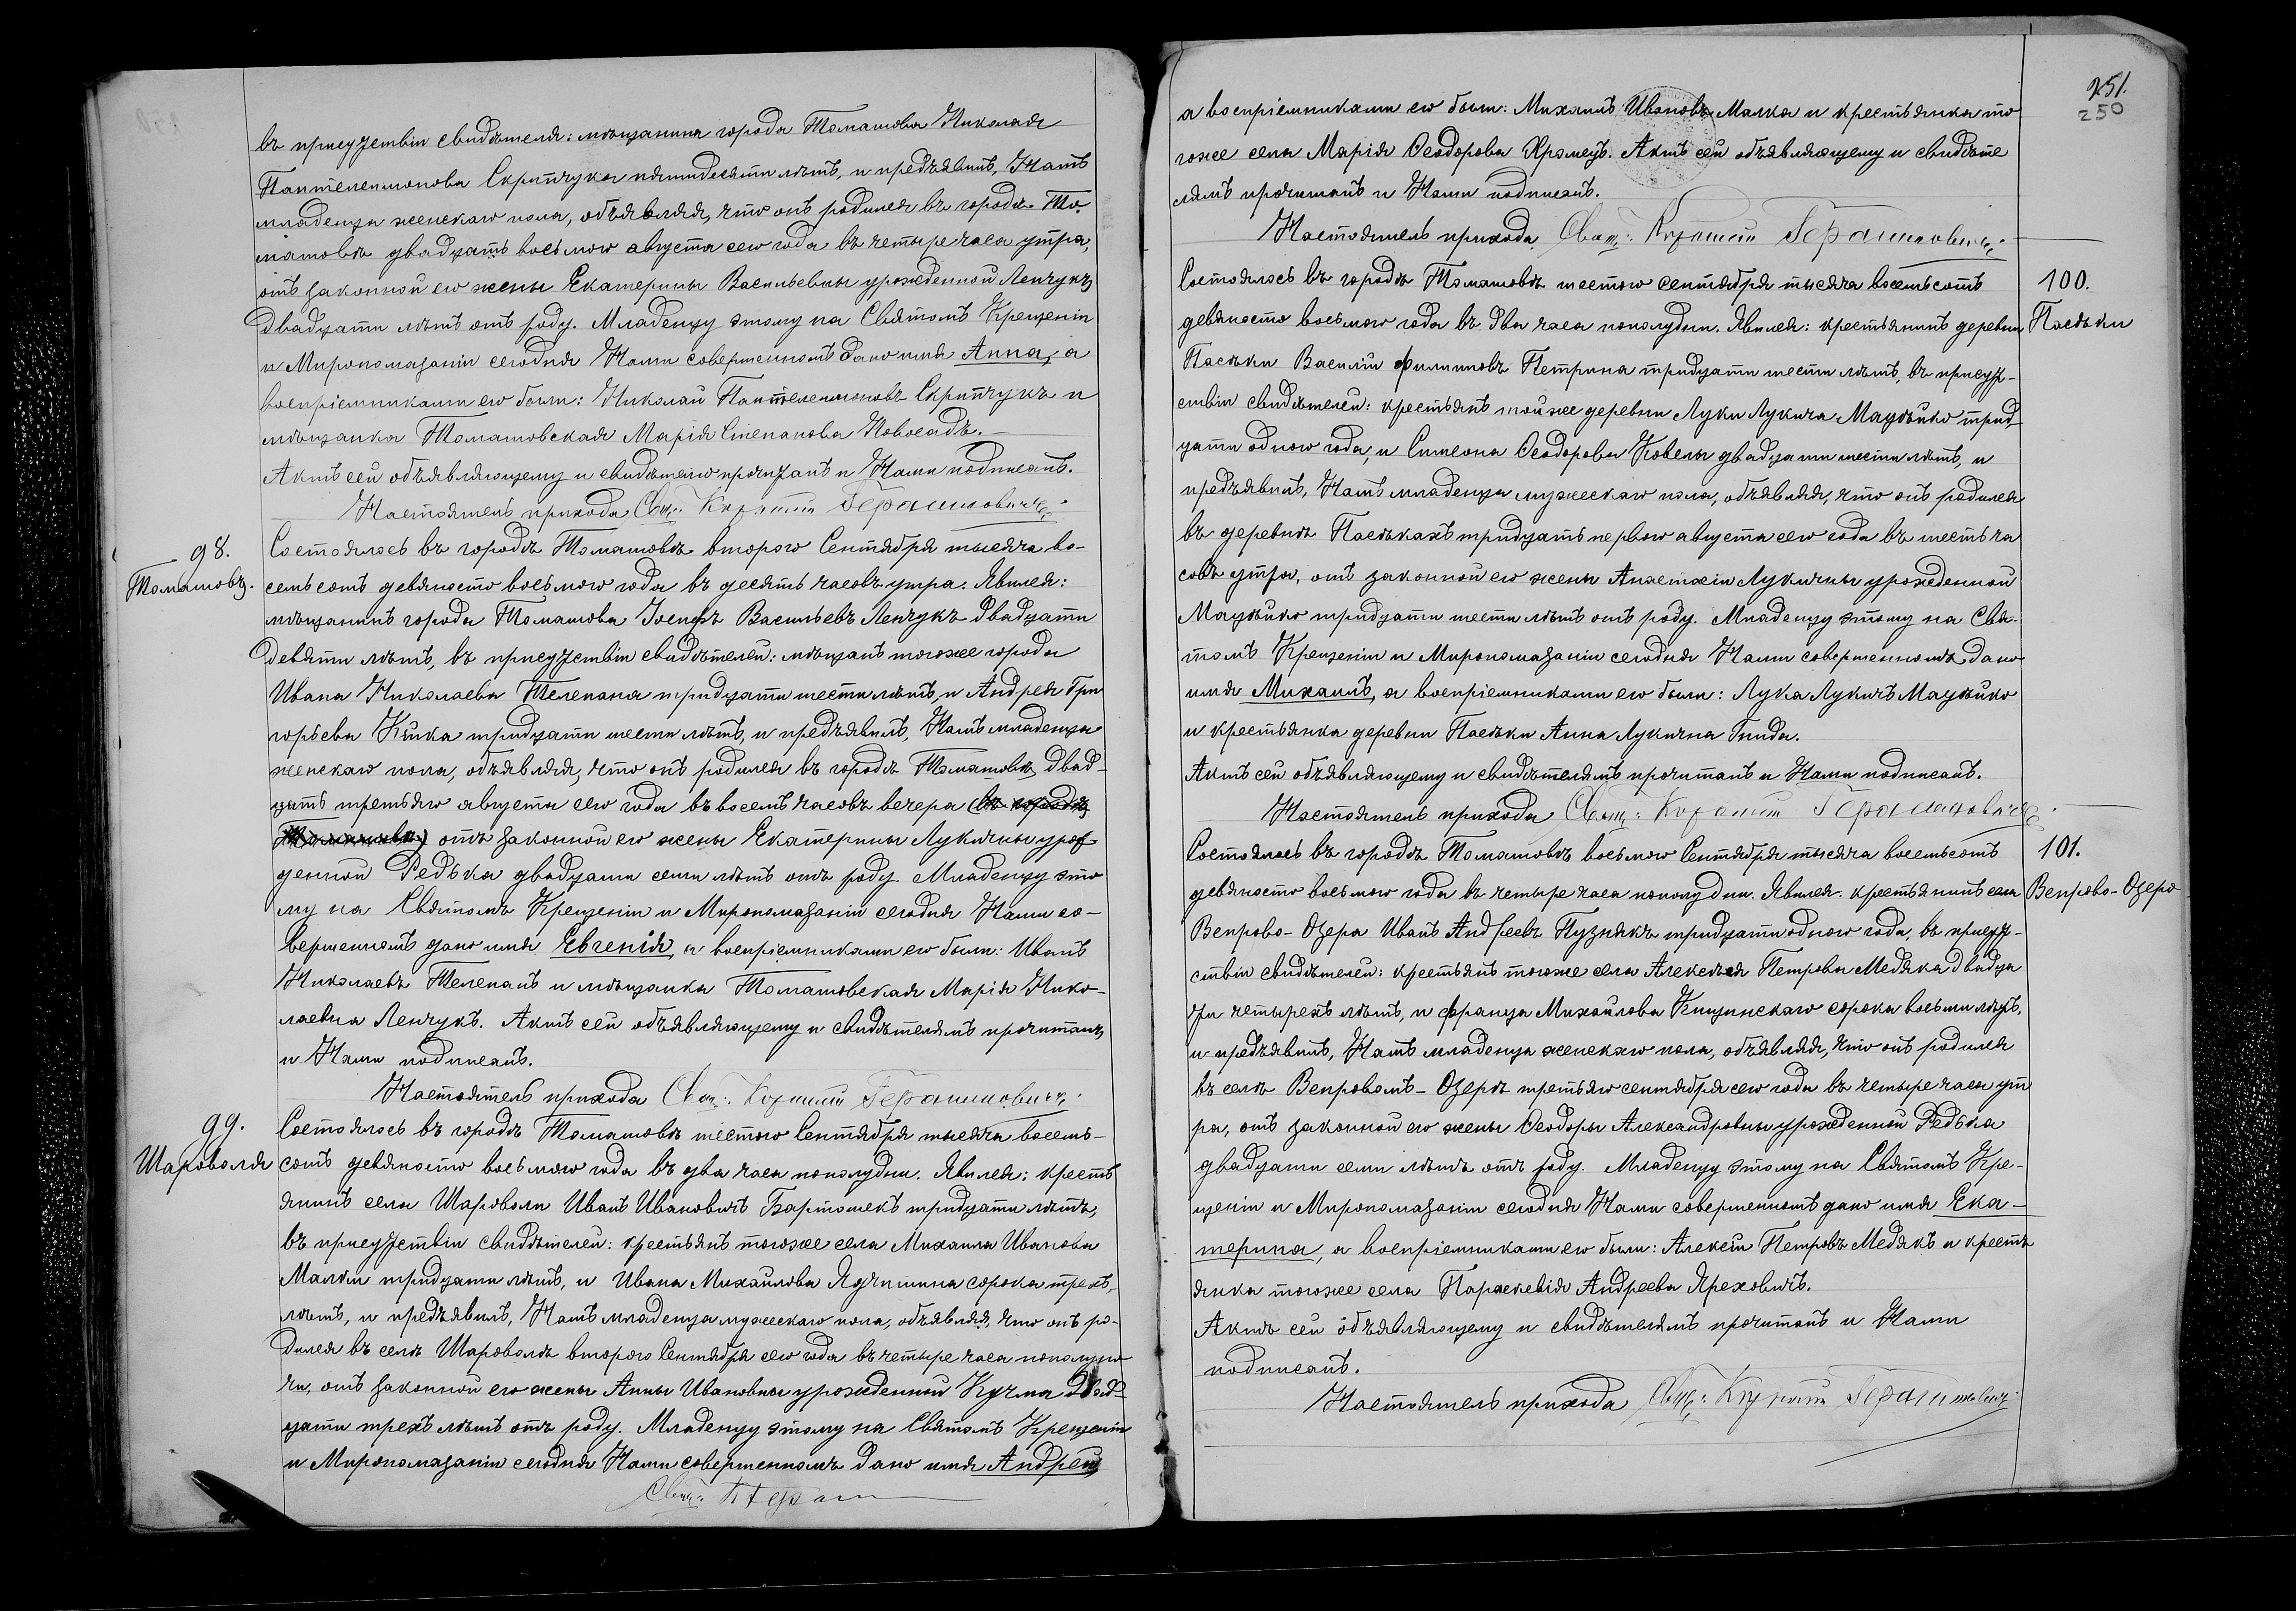 въ присутствіи свидѣтеля: мѣщанина города Томашова Николая
Пантелеимонова Скрипчука пятидесяти лѣтъ, и предъявилъ, Намъ
младенца женскаго пола, объявляя, что онъ родился въ городѣ То-
машовѣ двадцать восьмого августа сего года въ четыре часа утра,
отъ законной его жены Екатерины Васильевны урожденной Ленчукъ
двадцати лѣтъ отъ роду. Младенцу этому на Святомъ Крещеніи
и Миропомазаніи сегодня Нами совершенномъ дано имя Анна, а
воспріемниками его были: Николай Пантелеимоновъ Скрипчукъ и
мѣщанка Томашовская Марія Степанова Новосадъ.
Актъ сей объявляющему и свидѣтелю прочитанъ и Нами подписанъ.
Настоятель прихода Свящ: Герасимовичъ
98.
Томашовъ.
Состоялось въ городѣ Томашовѣ второго Сентября тысяча во-
семьсотъ девяносто восьмого года въ десять часовъ утра. Явился:
мѣщанинъ города Томашова Іосифъ Васильевъ Ленчукъ двадцати
девяти лѣтъ, въ присутствіи свидѣтелей: мѣщанъ тогоже города
Ивана Николаева Телепана тридцати шести лѣтъ, и Андрея Гри
горьева Кійка тридцати шести лѣтъ, и предъявилъ, Намъ младенца
женскаго пола, объявляя, что онъ родился въ городѣ Томашовѣ двад-
цать третьяго августа сего года въ восемь часовъ вечера (въ городѣ
Томашовѣ) отъ законной его жены Екатерины Лукичны урож
денной Редька двадцати семи лѣтъ отъ роду. Младенцу это
му на Святомъ Крещеніи и Миропомазаніи сегодня Нами со-
вершенномъ дано имя Евгенія, а воспріемниками его были: Иванъ
Николаевъ Телепанъ и мѣщанка Томашовская Марія Нико-
лаевна Ленчукъ. Актъ сей объявляющему и свидѣтелямъ прочитанъ
и Нами подписанъ.
Настоятель прихода Свящ: Герасимовичъ
99.
Шароволя
Состоялось въ городѣ Томашовѣ шестого Сентября тысяча восемь-
сотъ девяносто восьмого года въ два часа пополудни. Явился: кресть
янинъ села Шароволи Иванъ Ивановичъ Бартошекъ тридцати лѣтъ,
въ присутствіи свидѣтелей: крестьянъ тогоже села Михаила Иванова
Малки тридцати лѣтъ, и Ивана Михайлова Ядчишина сорока трехъ
лѣтъ, и предъявилъ, Намъ младенца мужескаго пола, объявляя, что онъ ро-
дился въ селѣ Шароволѣ второго Сентября сего года въ четыре часа пополуно
чи, отъ законной его жены Анны Ивановны урожденной Кучма двад-
цати трехъ лѣтъ отъ роду. Младенцу этому на Святомъ Крещеніи
и Миропомазаніи сегодня Нами совершенномъ дано имя Андрей,
Свящ:
251.
250
а воспріемниками его были: Михаилъ Ивановъ Малка и крестьянка то
гоже села Марія Ѳеодорова Хромецъ. Актъ сей объявляющему и свидѣте
лямъ прочитанъ и Нами подписанъ.
Настоятель прихода Свящ: Герасимовичъ
100.
Пасѣки
Состоялось въ городѣ Томашовѣ шестого сентября тысяча восемьсотъ
девяносто восьмого года въ два часа пополудни. Явился: крестьянинъ деревни
Пасѣки Василій Филиповъ Петрина тридцати шести лѣтъ, въ присут-
ствіи свидѣтелей: крестьянъ тойже деревни Луки Лукича Мацѣйко трид
цати одного года, и Симеона Ѳеодорова Ковелы двадцати шести лѣтъ, и
предъявилъ, Намъ младенца мужескаго пола, объявляя, что онъ родился
въ деревнѣ Пасѣкахъ тридцать первого августа сего года въ шесть ча
совъ утра, отъ законной его жены Анастасіи Лукичны урожденной
Мацѣйко тридцати шести лѣтъ отъ роду. Младенцу этому на Свя-
томъ Крещеніи и Миропомазаніи сегодня Нами совершенномъ дано
имя Михаилъ, а воспріемниками его были: Лука Лукичъ Мацѣйко
и крестьянка деревни Пасѣки Анна Лукична Гнида.
Актъ сей объявляющему и свидѣтелямъ прочитанъ и Нами подписанъ.
Настоятель прихода Свящ: Герасимовичъ
101.
Вепрово-Озеро
Состоялось въ городѣ Томашовѣ восьмого Сентября тысяча восемьсотъ
девяносто восьмого года въ четыре часа пополудни. Явился: крестьянинъ села
Вепрово-Озера Иванъ Андреевъ Пузнякъ тридцати одного года, въ присут-
ствіи свидѣтелей: крестьянъ тогоже села Алексѣя Петрова Медяка двадца
ти четырехъ лѣтъ, и Франца Михайлова сорока восьми лѣтъ,
и предъявилъ, Намъ младенца женскаго пола, объявляя, что онъ родился
въ селѣ Вепровомъ-Озерѣ третьяго сентября сего года въ четыре часа ут
ра, отъ законной его жены Ѳеодоры Александровны урожденной Редька
двадцати семи лѣтъ отъ роду. Младенцу этому на Святомъ Кре-
щеніи и Миропомазаніи сегодня Нами совершенномъ дано имя Ека-
терина, а воспріемниками его были: Алексѣй Петровъ Медякъ и кресть
янка тогоже села Параскевія Андреева Яреховичъ.
Актъ сей объявляющему и свидѣтелямъ прочитанъ и Нами
подписанъ.
Настоятель прихода Свящ: Герасимовичъ